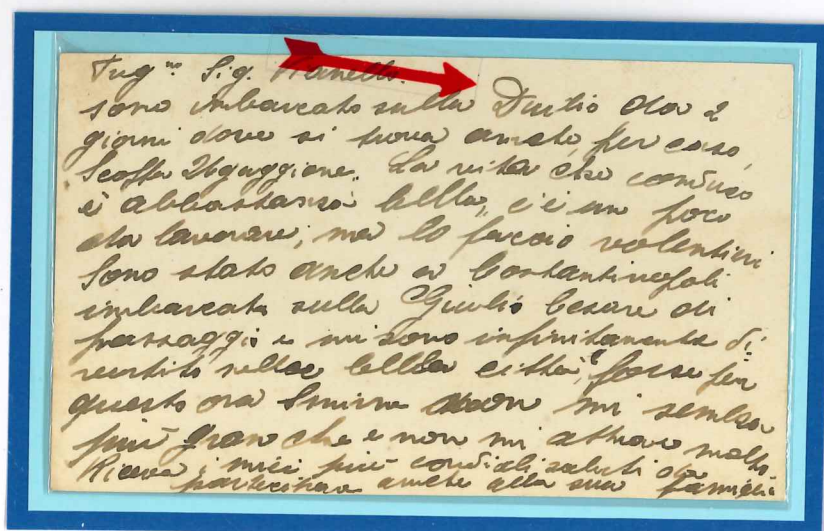 Sig.
sono imbarcato sulla Duilio da 2
giorni dove si trova anche, per caso,
La vita che conduco
è abbastanza bella, c'è un poco
da lavorare; ma lo faccio volentieri
Sono stato anche a Costantinopoli
imbarcato sulla Giulio Cesare di
passaggio e mi sono infinitamente di
vertito nella bella città, forse per
questo ora Smirne non mi sembra
più gran che e non mi attrae molto
Riceva i miei più cordiali saluti da
partecipare anche alla sua famiglia